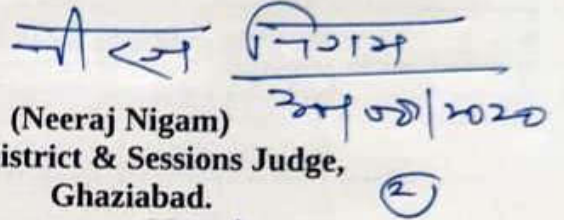 नीरज निगम
(Neeraj Nigam)
istrict & Sessions Judge,
Ghaziabad.
2